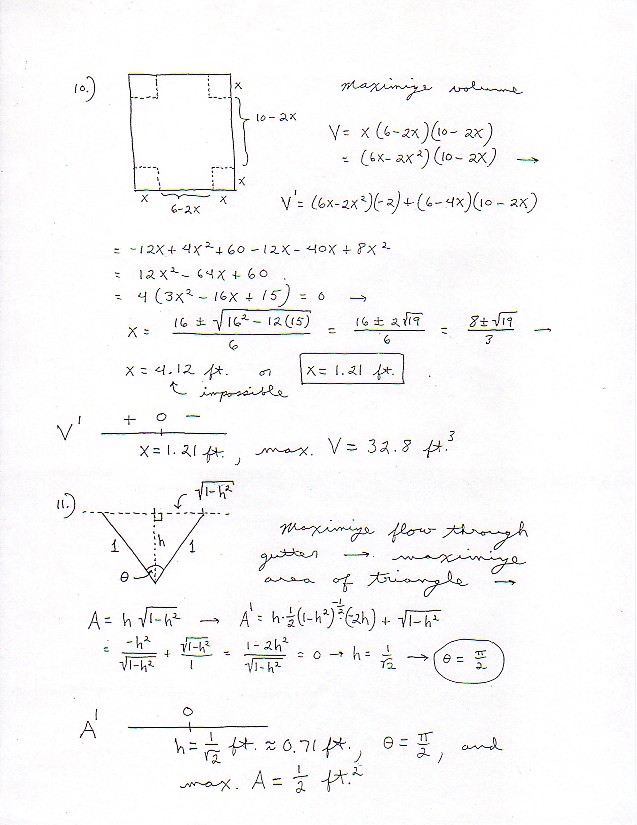 10.)
x
maximize volume
10-2x
V = x(6-2x)(10-2x)
= (6x-2x²)(10-2x) →
x
x 6-2x x
V' = (6x-2x²)(-2)+(6-4x)(10-2x)
= -12x+4x²+60-12x-40x+8x²
= 12x²-64x+60
= 4(3x²-16x+15) = 0 →
x = (16 ± √(16²-12(15)))/6 = (16 ± 2√19)/6 = (8±√19)/3 →
x = 4.12 ft. or x = 1.21 ft.
↖ impossible
V' + 0 -
x = 1.21 ft., max. V = 32.8 ft.³
11.)
√(1-h²)
1 h 1
θ
Maximize flow through
gutter → maximize
area of triangle →
A = h√(1-h²) → A' = h·½(1-h²)^(-½)(-2h) + √(1-h²)
= -h²/√(1-h²) + √(1-h²)/1 = (1-2h²)/√(1-h²) = 0 → h = 1/√2 → θ = π/2
A' 0
h = 1/√2 ft. ≈ 0.71 ft., θ = π/2, and
max. A = ½ ft.²